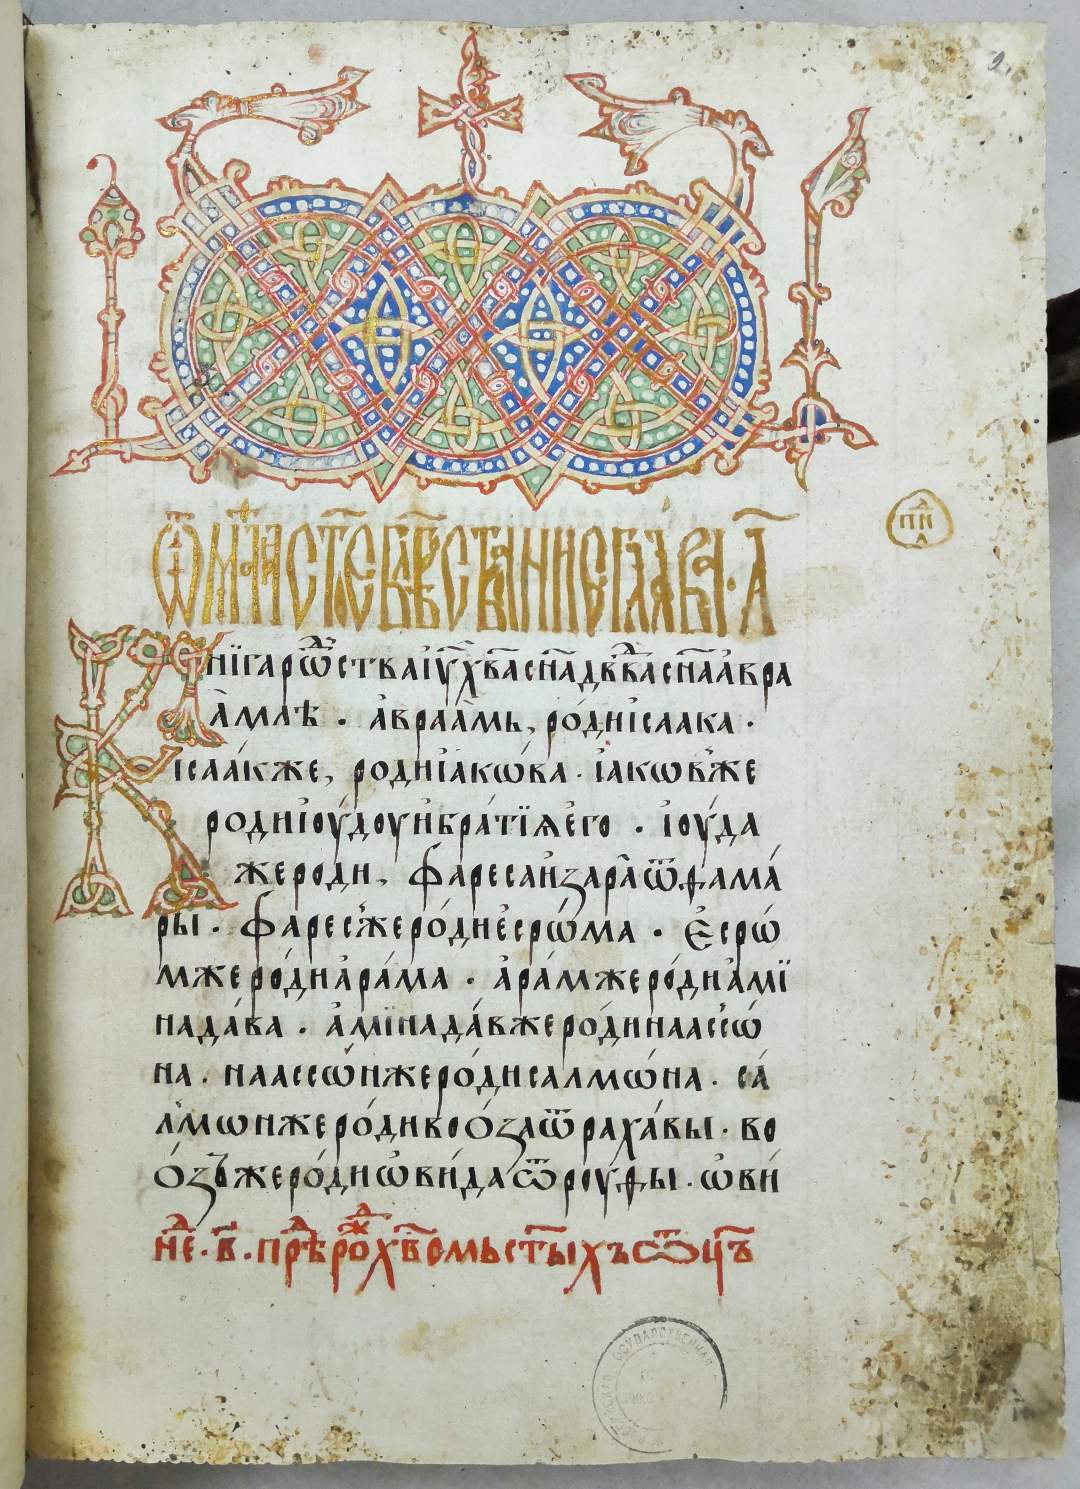 ѿ маⷴ҇ѳеа ст҃ое бл҃говѣствованиⷷе глава · а҃
Книга роⷤ҇ства і҆у҃ х҃ва сн҃а дв҃два сн҃а авра
а́млѣ · а҆враа́мь, ро́ди і҆саака ·
і҆саа́к же, роди і҆акѡ́ва · і҆акѡв же
роди і҆оу́доу и҆ бра́тїѧ є҆го · і҆оу́да
же роди, фареса и҆ зара ѿ фама́
ры · фарес же ро́ди є҆срѡ́ма · Є҆срѡ́
м же ро́ди а҆ра́ма · а҆ра́м же ро́ди а҆мї
нада́ва · а҆мїнада́в же ро́ди наассѡ́
на · наассѡ́н же ро́ди салмѡ́на · са́
лмѡн же ро́ди воо́за ѿ раха́вы · во
о́зъ же ро́ди ѡ҆ви́да ѿ роу́фы · ѡ҆ви́
неⷣ · в҃ · преⷣ рожⷣ҇ х҃вомь ст҃ыхъ ѿц҃ъ